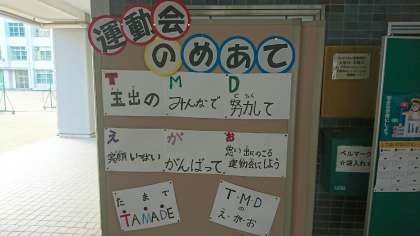 運動会
のめあて
T M D
玉出の みんなで 努力して
え が お
笑顔いっぱい がんばって 思い出にのこる
運動会にしよう
たまで
TAMADE
T・M・D
の
え・が・お
ベルマーク